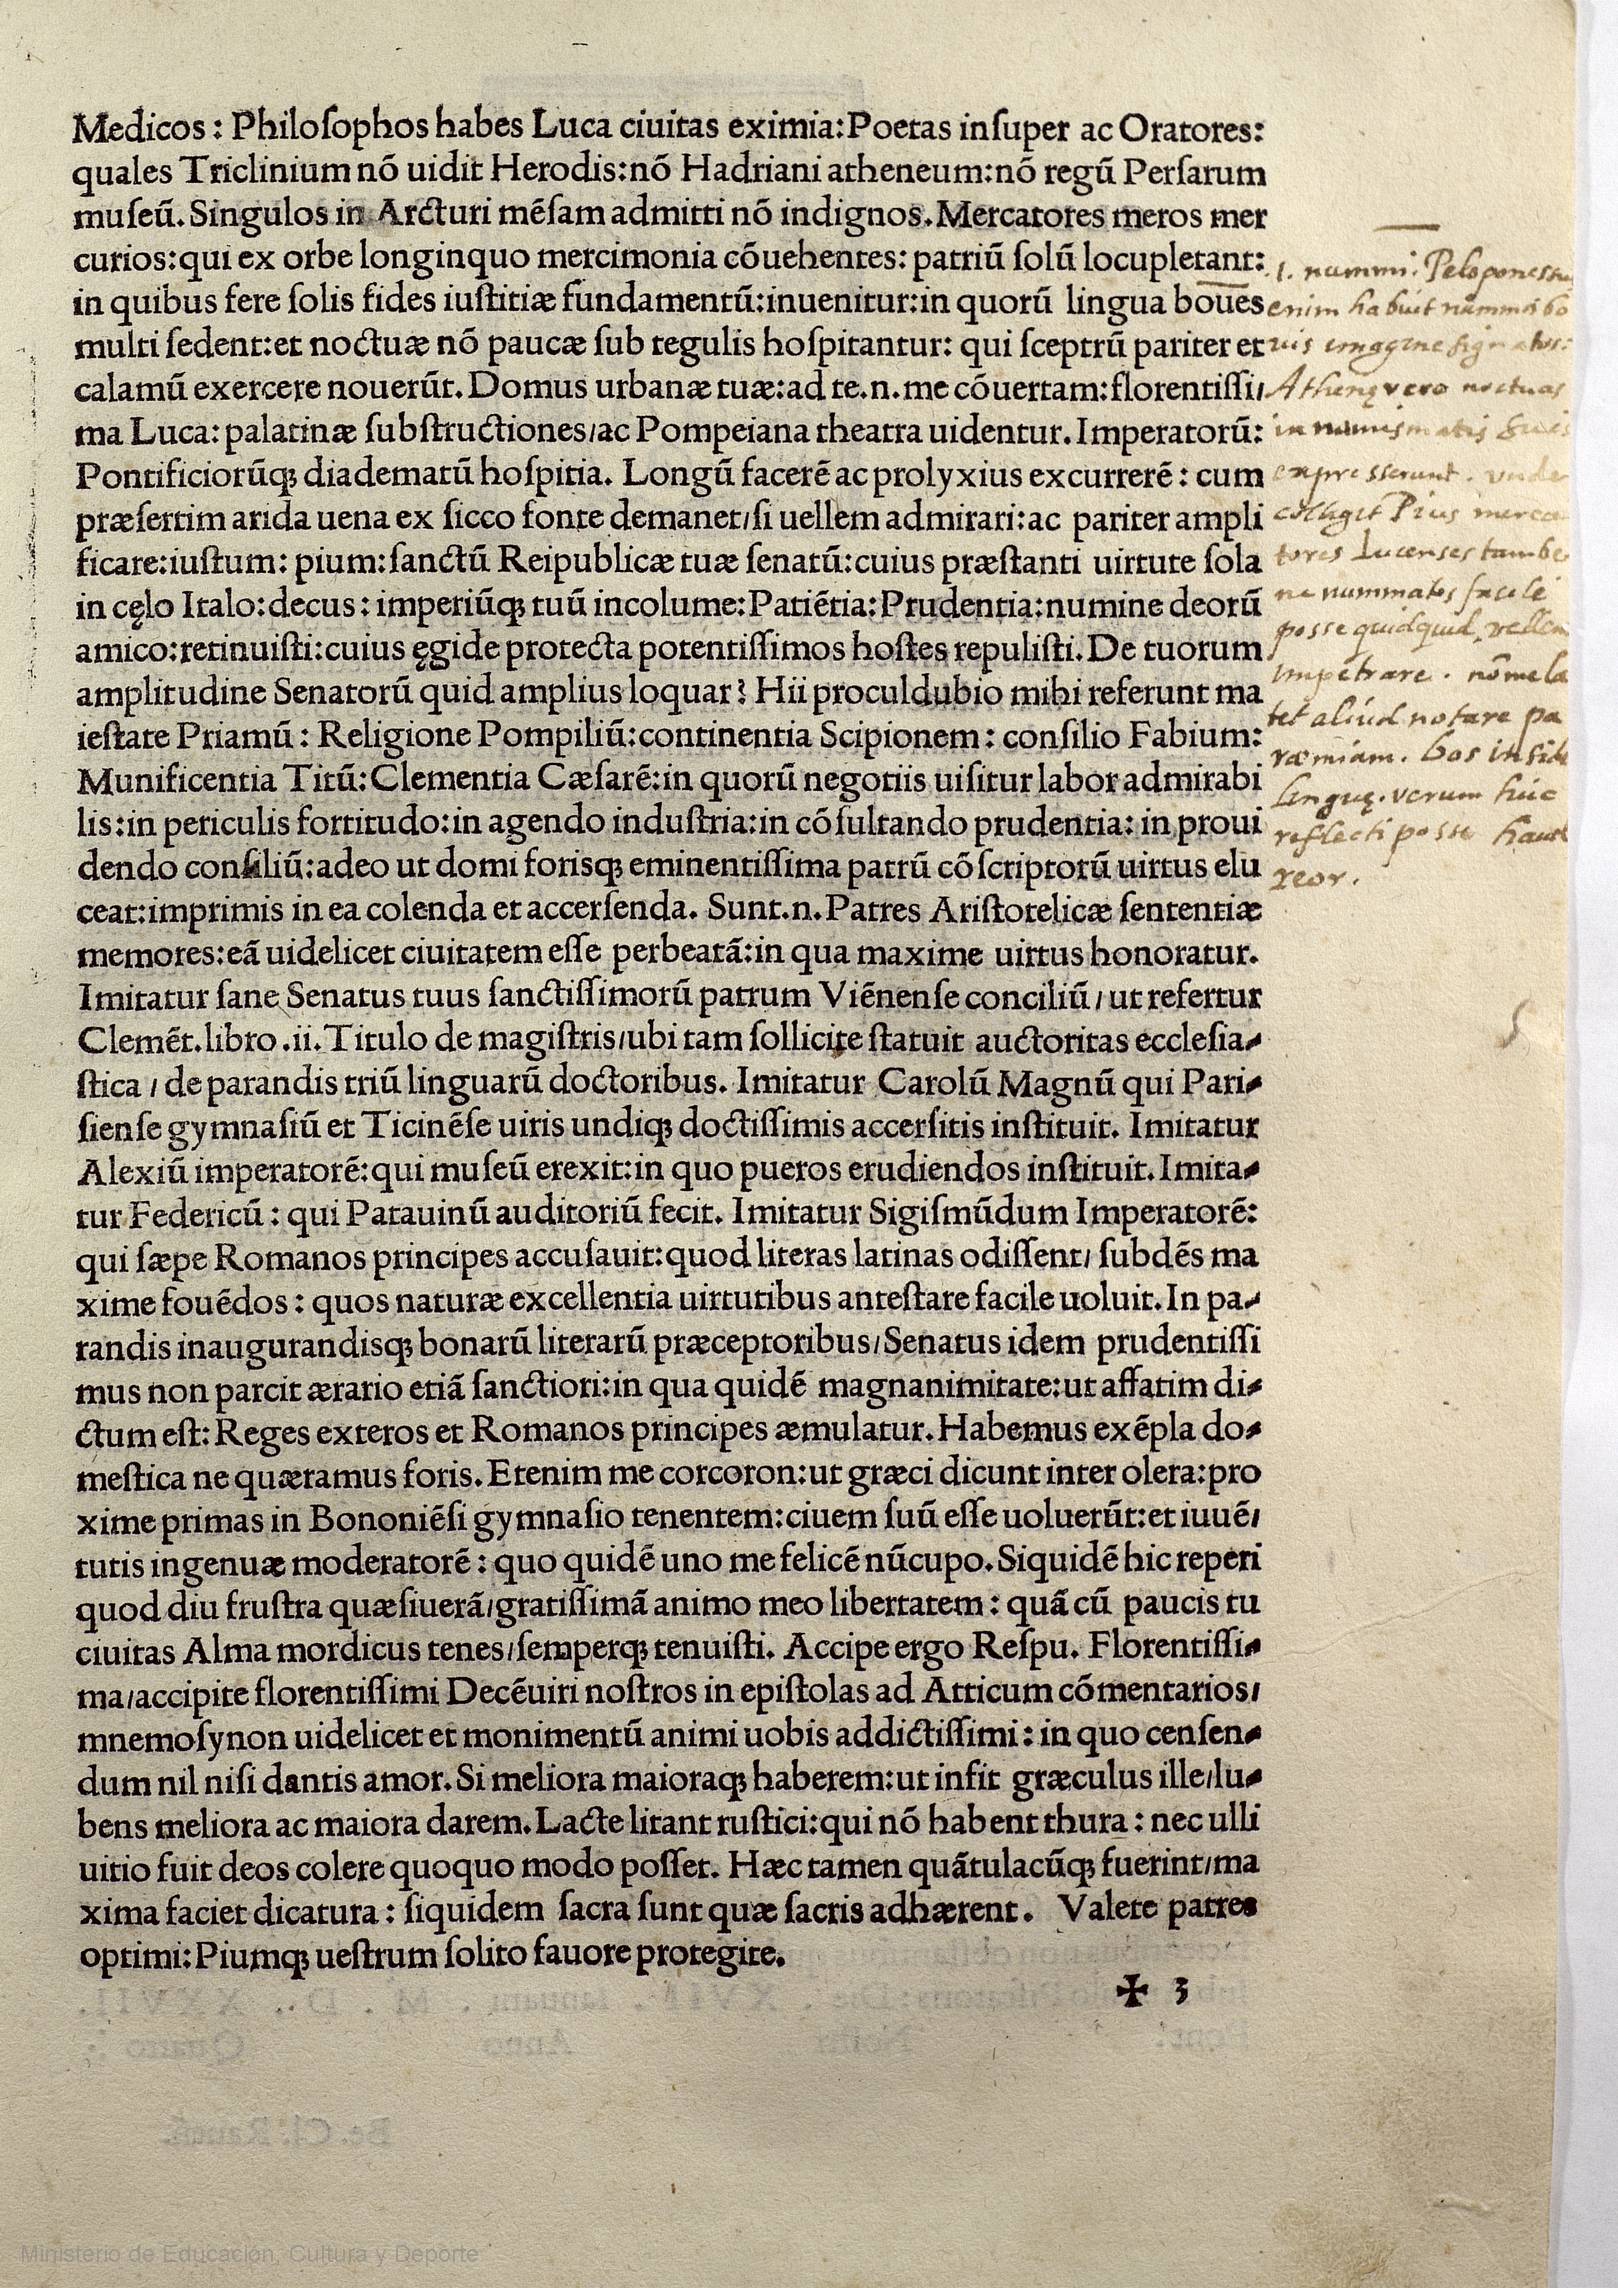 Medicos: Philoſophos habes Luca ciuitas eximia: Poetas inſuper ac Oratores:
quales Triclinium nõ uidit Herodis: nõ Hadriani atheneum: nõ regũ Perſarum
muſeũ. Singulos in Arcturi mẽſam admitti nõ indignos. Mercatores meros mer
curios: qui ex orbe longinquo mercimonia cõuehentes: patriũ ſolũ locupletant:
in quibus fere ſolis fides iuſtitiæ fundamentũ: inuenitur: in quorũ lingua boues
multi ſedent: et noctuæ nõ paucæ ſub tegulis hoſpitantur: qui ſceptrũ pariter et
calamũ exercere nouerũt. Domus urbanæ tuæ: ad te .n. me cõuertam: florentiſſi/
ma Luca: palatinæ ſubſtructiones/ac Pompeiana theatra uidentur. Imperatorũ:
Pontificiorũq; diadematũ hoſpitia. Longũ facerẽ ac prolyxius excurrerẽ: cum
præſertim arida uena ex ſicco fonte demanet/ſi uellem admirari: ac pariter ampli
ficare: iuſtum: pium: ſanctũ Reipublicæ tuæ ſenatũ: cuius præſtanti uirtute ſola
in cęlo Italo: decus: imperiũq; tuũ incolume: Patiẽtia: Prudentia: numine deorũ
amico: retinuiſti: cuius ęgide protecta potentiſſimos hoſtes repuliſti. De tuorum
amplitudine Senatorũ quid amplius loquar? Hii proculdubio mihi referunt ma
ieſtate Priamũ: Religione Pompiliũ: continentia Scipionem: conſilio Fabium:
Munificentia Titũ: Clementia Cæſarẽ: in quorũ negotiis uiſitur labor admirabi
lis: in periculis fortitudo: in agendo induſtria: in cõſultando prudentia: in proui
dendo conſiliũ: adeo ut domi foriſq; eminentiſſima patrũ cõſcriptorũ uirtus elu
ceat: imprimis in ea colenda et accerſenda. Sunt .n. Patres Ariſtotelicæ ſententiæ
memores: eã uidelicet ciuitatem eſſe perbeatã: in qua maxime uirtus honoratur.
Imitatur ſane Senatus tuus ſanctiſſimorũ patrum Viẽnenſe conciliũ/ut refertur
Clemẽt. libro .ii. Titulo de magiſtris/ubi tam ſollicite ſtatuit auctoritas eccleſia-
ſtica/de parandis triũ linguarũ doctoribus. Imitatur Carolũ Magnũ qui Pari-
ſienſe gymnaſiũ et Ticinẽſe uiris undiq; doctiſſimis accerſitis inſtituit. Imitatur
Alexiũ imperatorẽ: qui muſeũ erexit: in quo pueros erudiendos inſtituit. Imita-
tur Federicũ: qui Patauinũ auditoriũ fecit. Imitatur Sigiſmũdum Imperatorẽ:
qui ſæpe Romanos principes accuſauit: quod literas latinas odiſſent/ſubdẽs ma
xime fouẽdos: quos naturæ excellentia uirtutibus anteſtare facile uoluit. In pa-
randis inaugurandiſq; bonarũ literarũ præceptoribus/Senatus idem prudentiſſi
mus non parcit ærario etiã ſanctiori: in qua quidẽ magnanimitate: ut affatim di-
ctum eſt: Reges exteros et Romanos principes æmulatur. Habemus exẽpla do-
meſtica ne quæramus foris. Etenim me corcoron: ut græci dicunt inter olera: pro
xime primas in Bononiẽſi gymnaſio tenentem: ciuem ſuũ eſſe uoluerũt: et iuuẽ/
tutis ingenuæ moderatorẽ: quo quidẽ uno me felicẽ nũcupo. Siquidẽ hic reperi
quod diu fruſtra quæſiuerã/gratiſſimã animo meo libertatem: quã cũ paucis tu
ciuitas Alma mordicus tenes/ſemperq; tenuiſti. Accipe ergo Reſpu. Florentiſſi-
ma/accipite florentiſſimi Decẽuiri noſtros in epiſtolas ad Atticum cõmentarios/
mnemoſynon uidelicet et monimentũ animi uobis addictiſſimi: in quo cenſen-
dum nil niſi dantis amor. Si meliora maioraq; haberem: ut infit græculus ille/lu-
bens meliora ac maiora darem. Lacte litant ruſtici: qui nõ habent thura: nec ulli
uitio fuit deos colere quoquo modo poſſet. Hæc tamen quãtulacũq; fuerint/ma
xima faciet dicatura: ſiquidem ſacra ſunt quæ ſacris adhærent. Valete patres
optimi: Piumq; ueſtrum ſolito fauore protegite.
✠ 3
i. nummi. Peloponessus
enim habuit nummos bo
uis imagine signatos:
Athenę vero noctuas
in numismatis suis
expresserunt. vnde
colligit Pius merca
tores Lucenses tam be
ne nummatos facile
posse quidquid vellent
impetrare. nõ me la
tet aliud notare pa
rœmiam. bos insidet
linguę. verum huc
reflecti posse haud
reor.
Ministerio de Educación, Cultura y Deporte